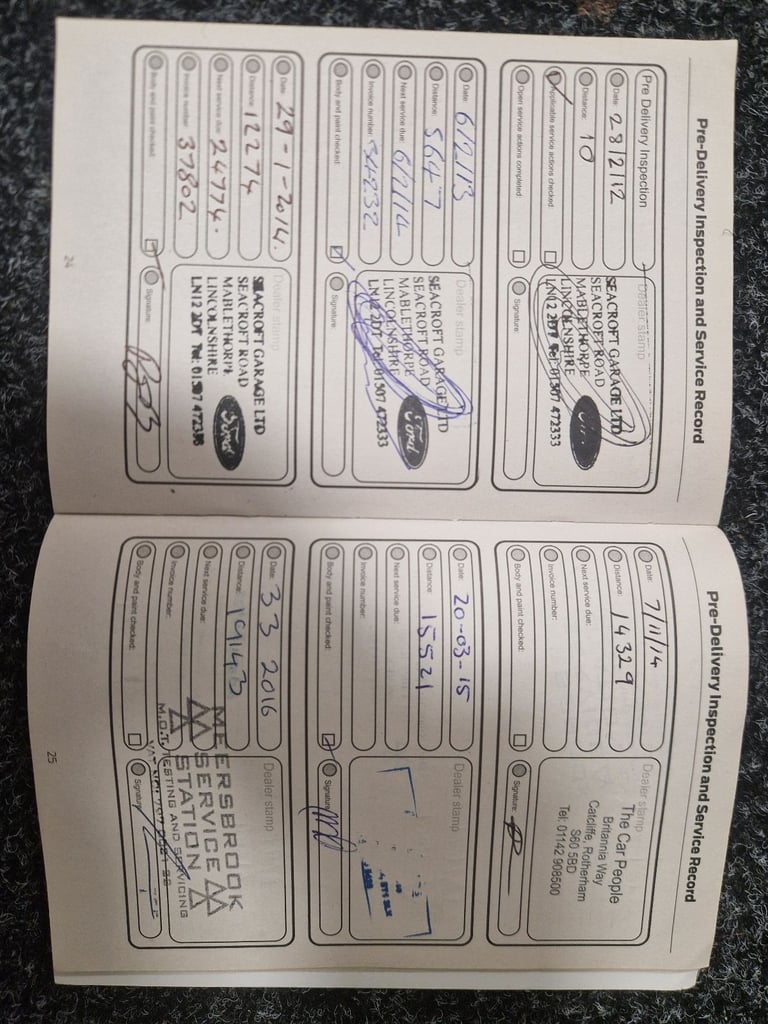 Pre-Delivery Inspection and Service Record
Pre Delivery Inspection
Date: 28/2/12
Distance: 10
Applicable service actions checked:
Open service actions completed:
Dealer stamp
SEACROFT GARAGE LTD
SEACROFT ROAD
MABLETHORPE
LINCOLNSHIRE
LN12 2DT Tel: 01507 472333
Signature:
Date: 6/2/13
Distance: 5647
Next service due: 6/2/14
Invoice number: 34232
Body and paint checked:
Dealer stamp
SEACROFT GARAGE LTD
SEACROFT ROAD
MABLETHORPE
LINCOLNSHIRE
LN12 2DT Tel: 01507 472333
Ford
Signature:
Date: 29-1-2014.
Distance: 12274
Next service due: 24774.
Invoice number: 37802
Body and paint checked:
Dealer stamp
SEACROFT GARAGE LTD
SEACROFT ROAD
MABLETHORPE
LINCOLNSHIRE
LN12 2DT Tel: 01507 472333
Ford
Signature:
24
Pre-Delivery Inspection and Service Record
Date: 7/11/14
Distance: 14329
Next service due:
Invoice number:
Body and paint checked:
Dealer stamp
The Car People
Britannia Way
Catcliffe, Rotherham
S60 5BD
Tel: 01142 908500
Signature:
Date: 20-03-15
Distance: 15521
Next service due:
Invoice number:
Body and paint checked:
Dealer stamp
Signature:
Date: 3 3 2016
Distance: 19143
Next service due:
Invoice number:
Body and paint checked:
Dealer stamp
MEERSBROOK
SERVICE
STATION
M.O.T. TESTING AND SERVICING
Signature:
25